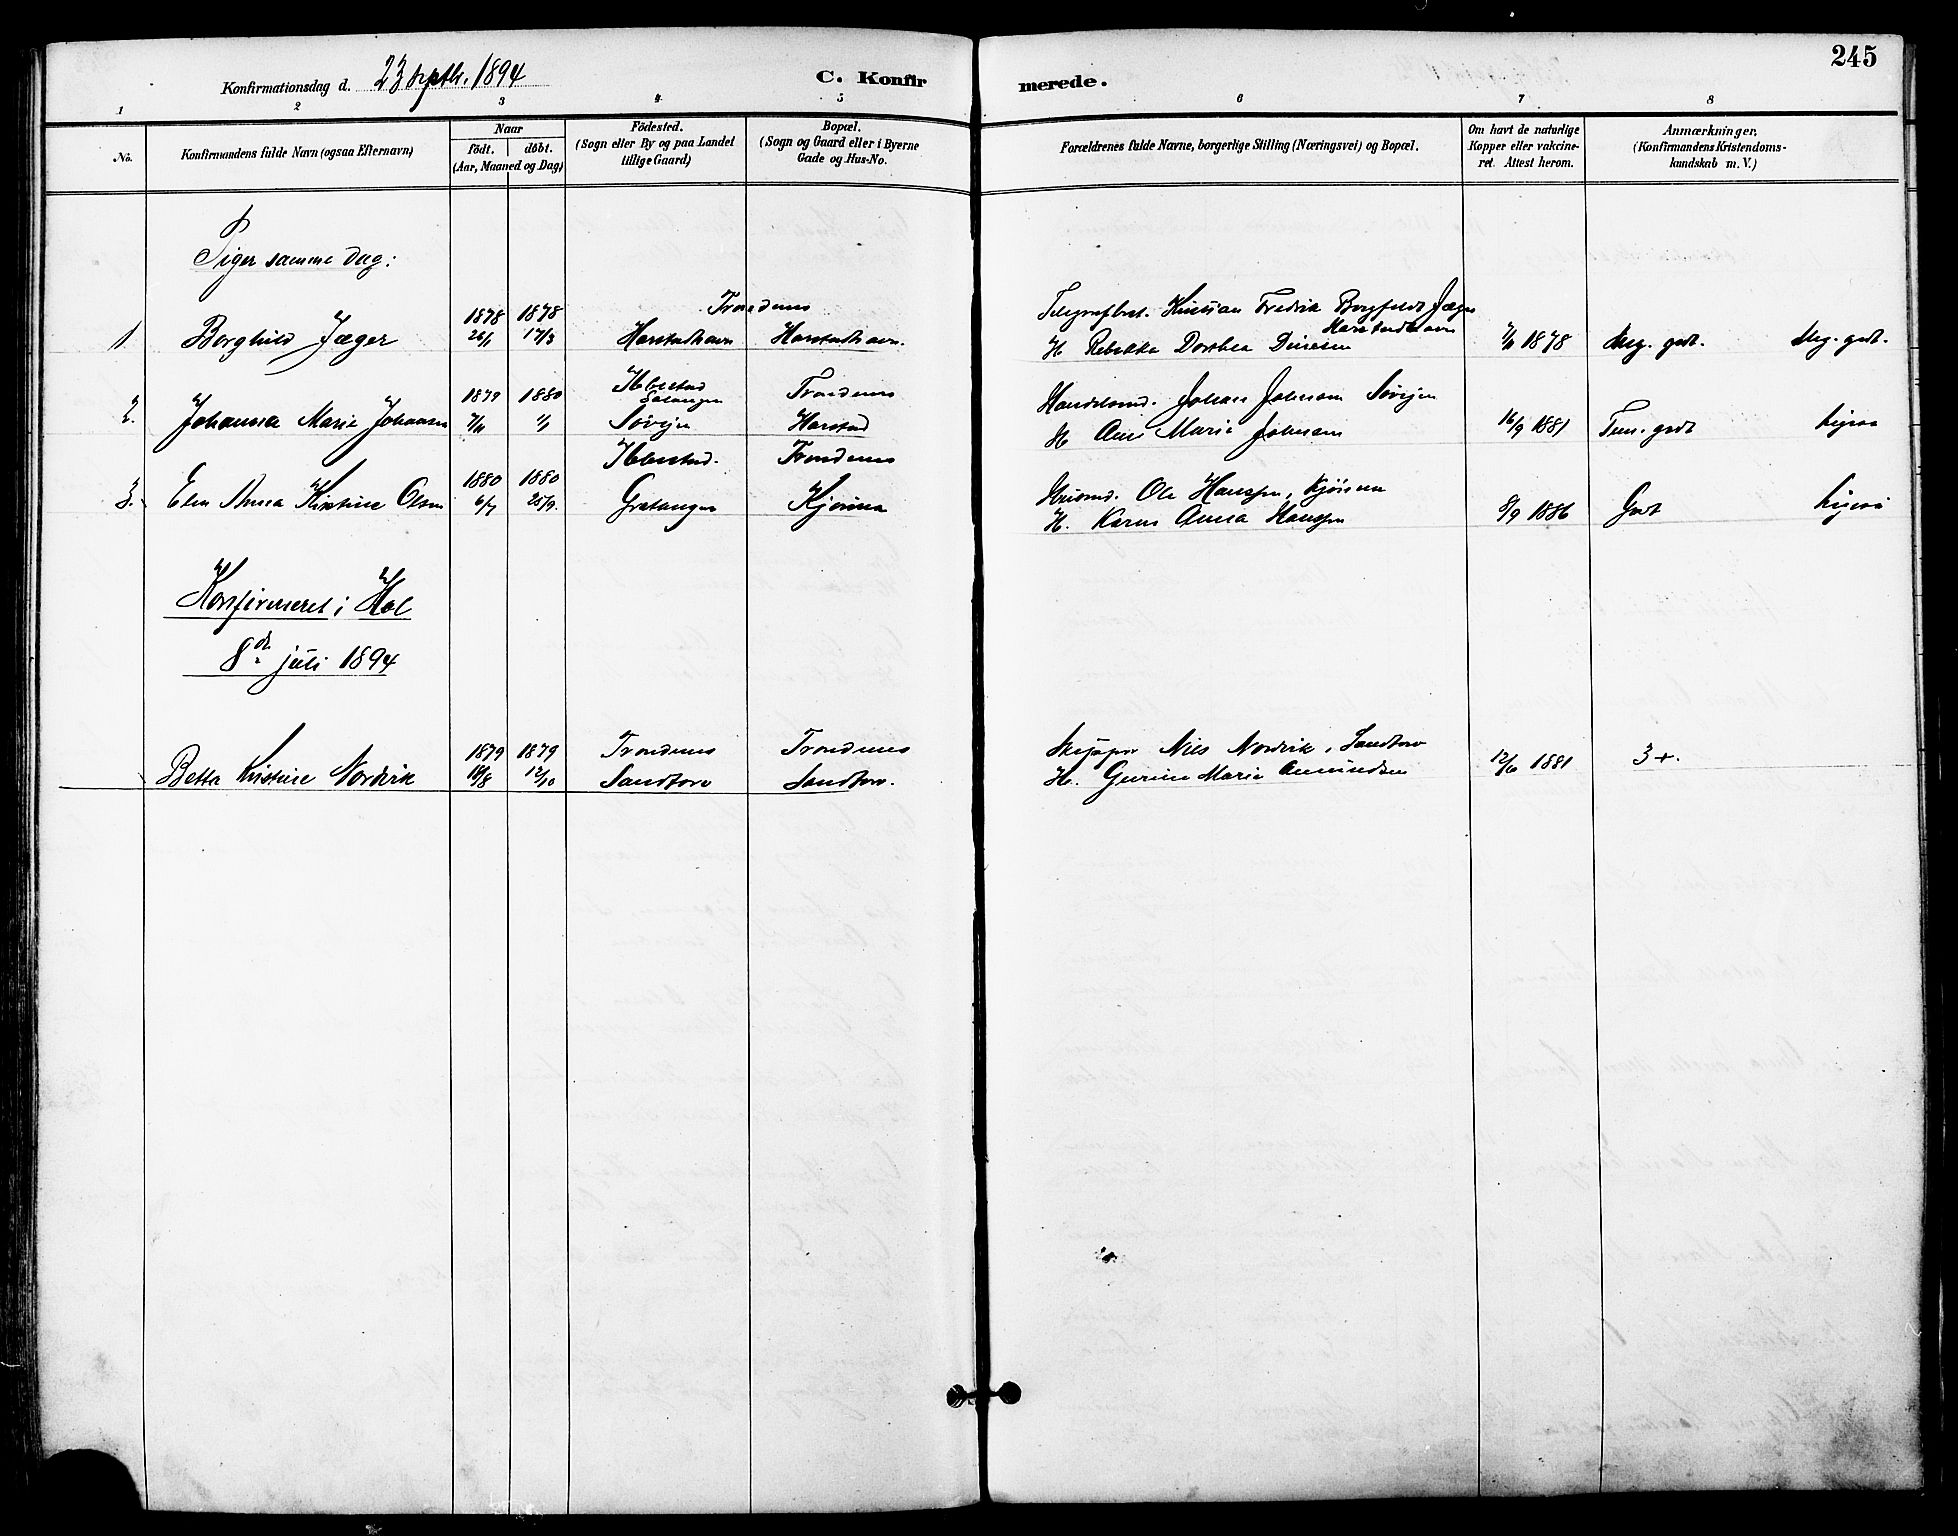 245
Konfirmationsdag d. 23 septb. 1894 C. Konfirmerede.
1 2 3 4 5 6 7 8
No.
Konfirmandens fulde Navn (ogsaa Efternavn)
Naar
født. døbt.
(Aar, Maaned og Dag)
Fødested.
(Sogn eller By og paa Landet
tillige Gaard)
Bopæl.
(Sogn og Gaard eller i Byerne
Gade og Hus-No.
Forældrenes fulde Navne, borgerlige Stilling (Næringsvei) og Bopæl.
Om havt de naturlige
Kopper eller vakcine-
ret. Attest herom.
Anmærkninger,
(Konfirmandens Kristendoms-
kundskab m. V.)
Piger samme dag:
1878 1878 Trondenes Telegrafbest. Kristian Fredrik Borgfeldt Jæger
Harstadhavn
1. Borghild Jæger 26/1 17/3 Harstadhavn Harstadhavn. H. Rebekka Dorthea 1878 Meg. godt. Meg. godt.
1879 1880 Ibbestad Trondenes
Salangen Handelsmd. Johan Johnsen Søvejen
2. Johanna Marie Johansen 1/1 Søvejen Harstad H. Ane Marie Johnsen 16/9 1881 Tem. godt Ligesaa
Ibbestad. Trondenes
1880 1880 Husmd. Ole Hanssen, Kjönna
3. Elen Anna Kristine Olsen 6/7 25/9 Gratangen Kjönna H. Karen Anna Hanssen 8/9 1886 Godt Ligesaa
Konfirmeret i Hol
8de juli 1894
1879 1879 Trondenes Trondenes Skipper Nils Nordvik, Sandtorv
Betta Kristine Nordvik 12/10 Sandtorv Sandtorv. H. Gurine Marie Amundsen 12/6 1881 3+.